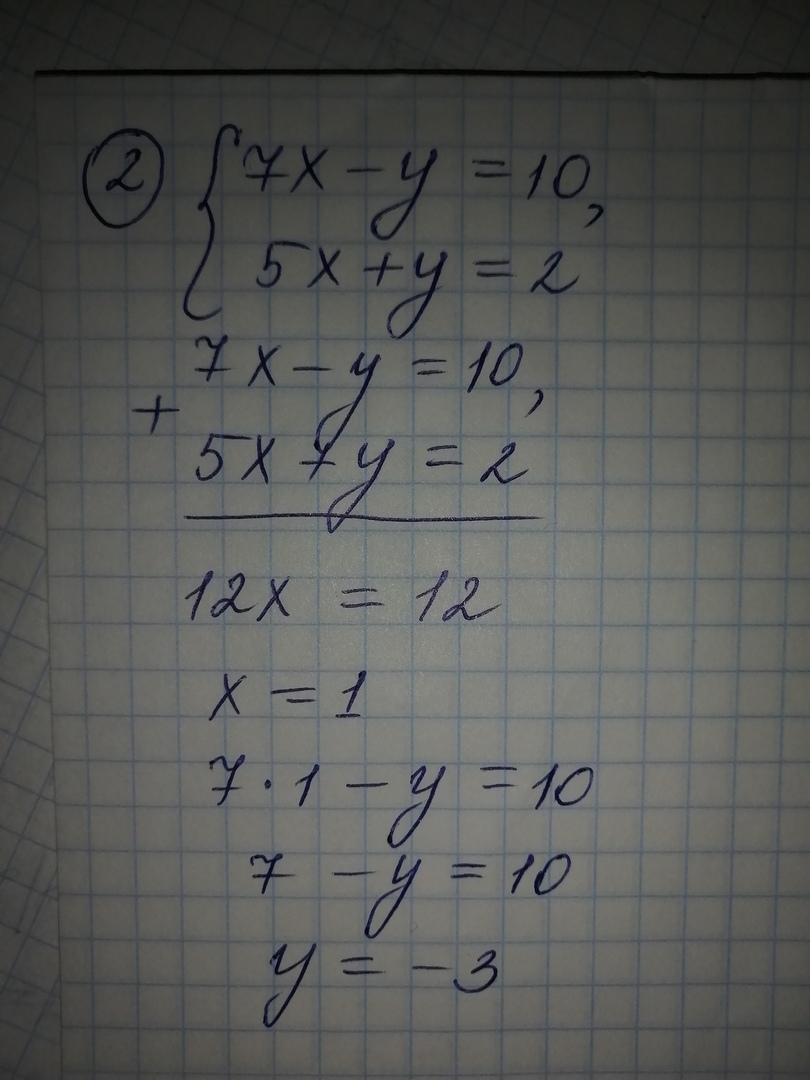 ② { 7x - y = 10,
5x + y = 2
7x - y = 10,
+
5x + y = 2
12x = 12
x = 1
7 · 1 - y = 10
7 - y = 10
y = -3